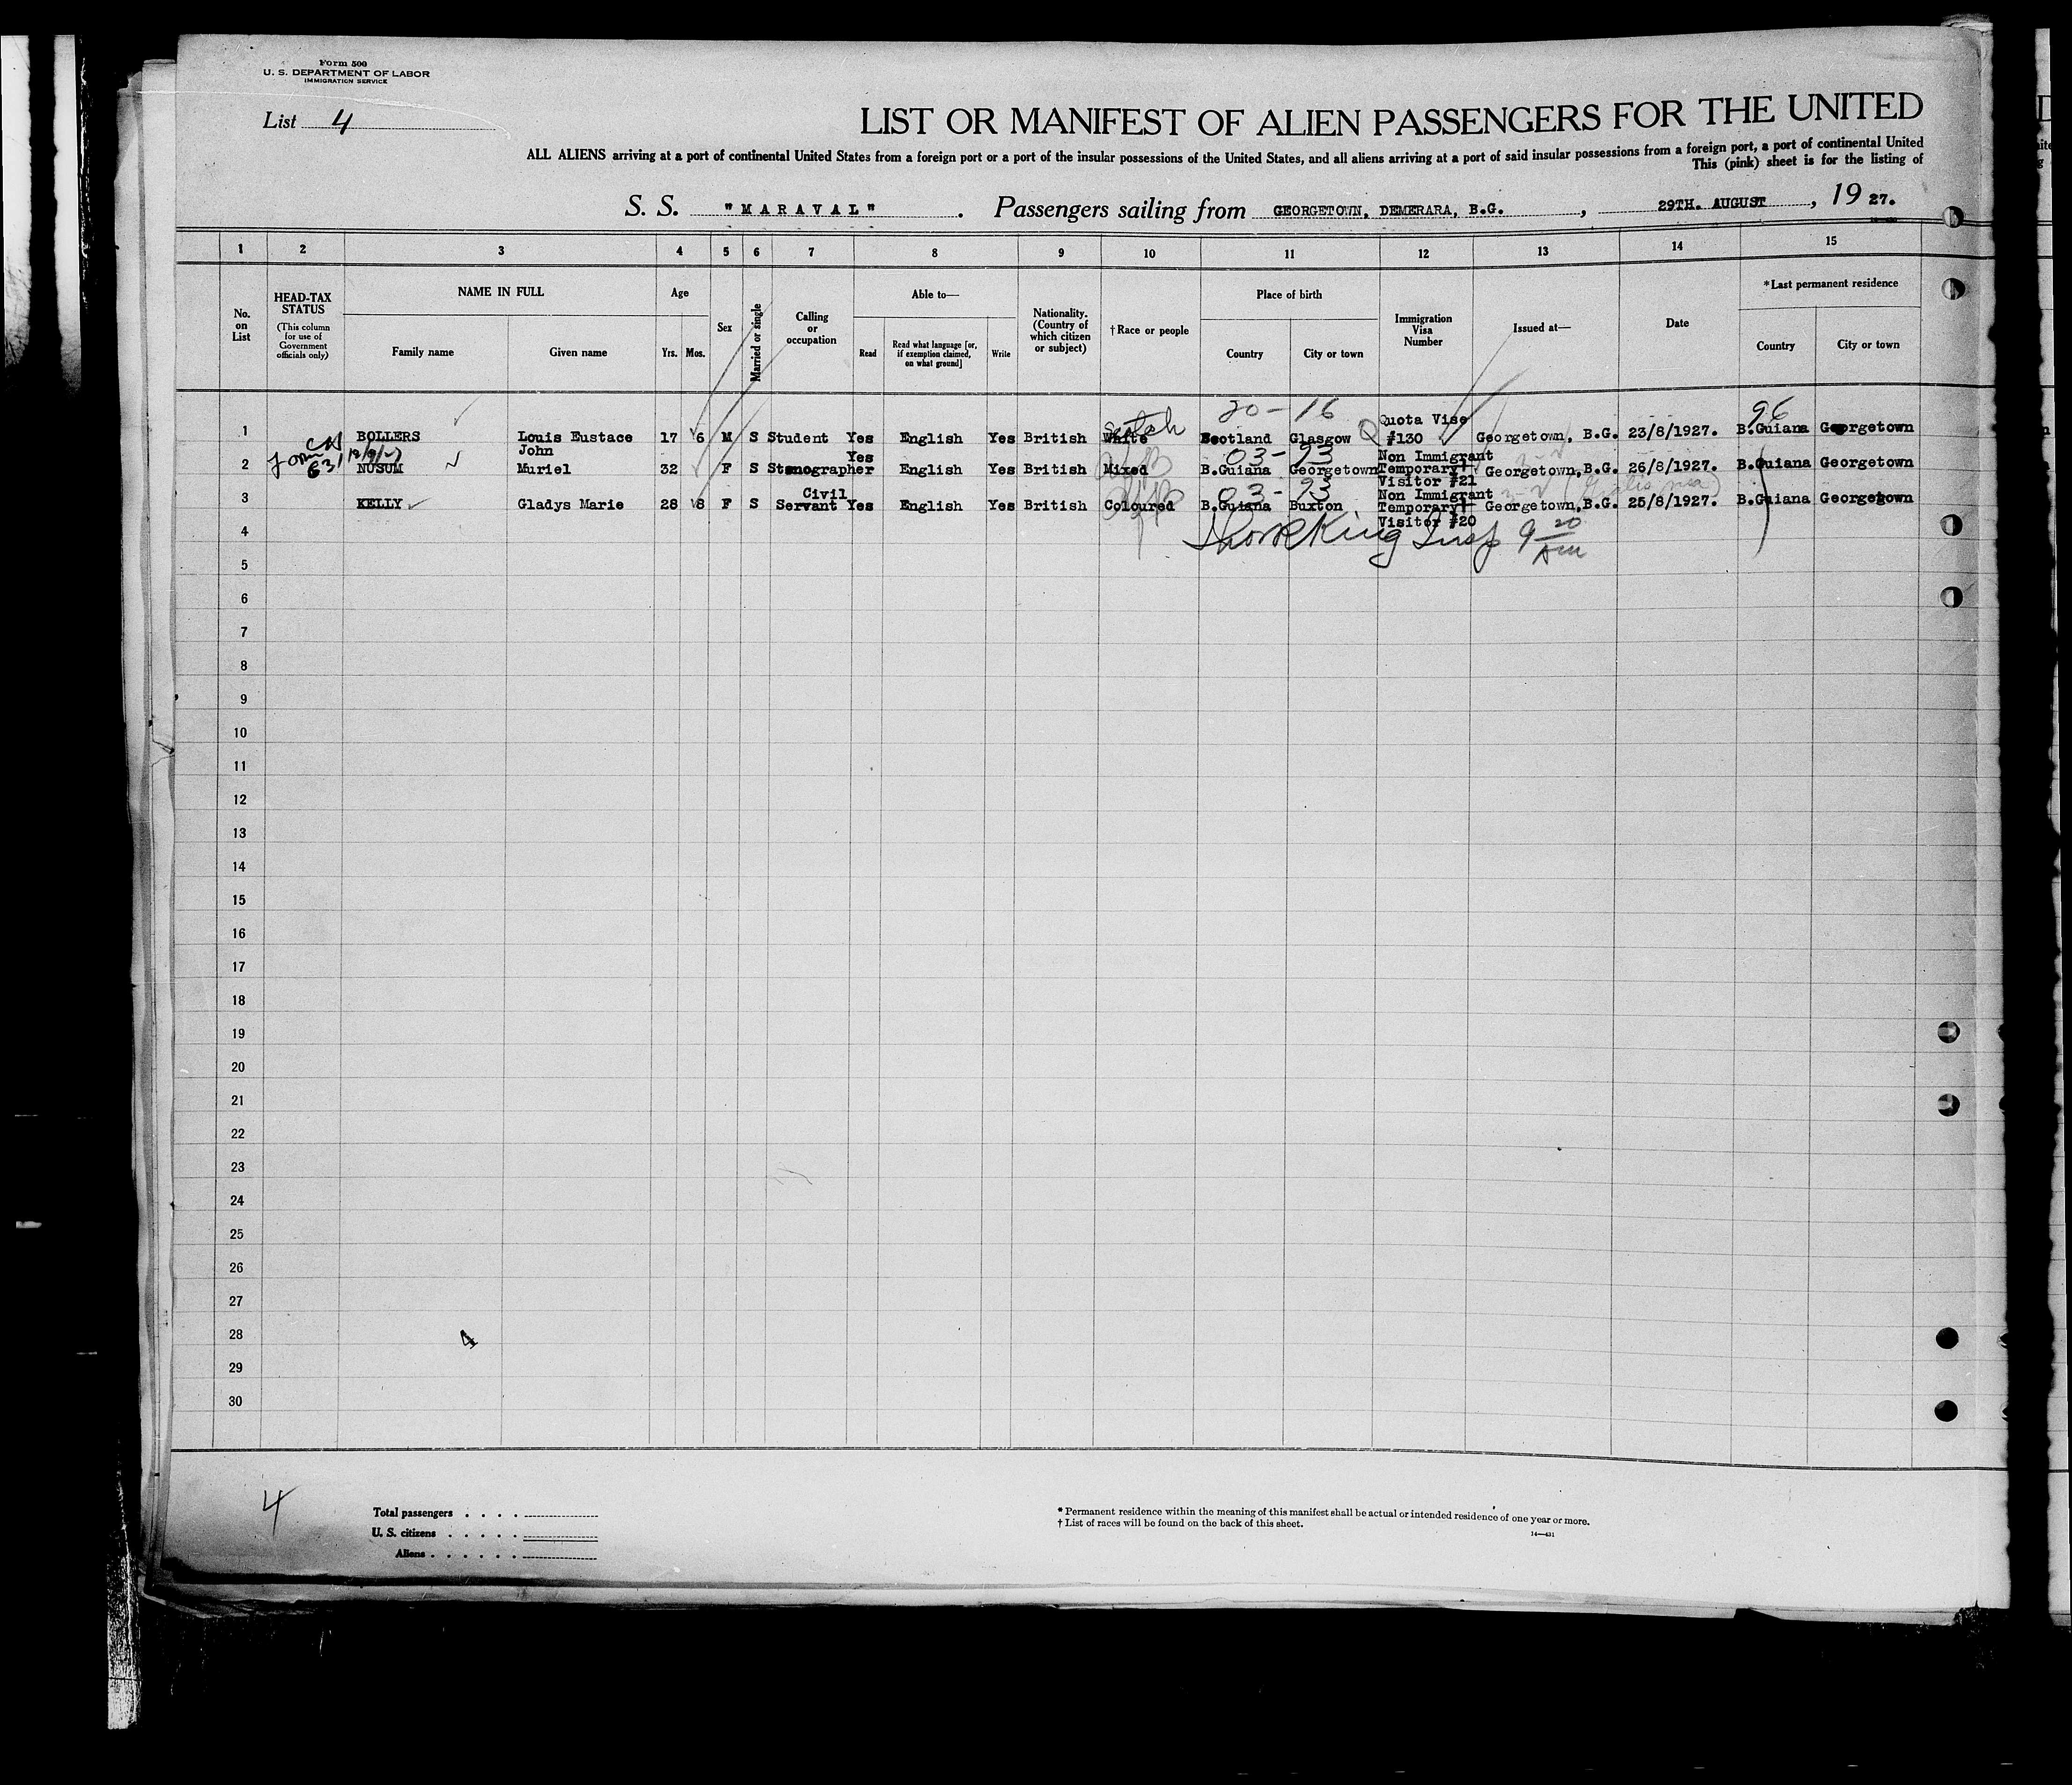 Form 500
U. S. DEPARTMENT OF LABOR
IMMIGRATION SERVICE
List 4
LIST OR MANIFEST OF ALIEN PASSENGERS FOR THE UNITED
ALL ALIENS arriving at a port of continental United States from a foreign port or a port of the insular possessions of the United States, and all aliens arriving at a port of said insular possessions from a foreign port, a port of continental United
This (pink) sheet is for the listing of
S. S. "MARAVAL". Passengers sailing from GEORGETOWN, DEMERARA, B.G., 29TH. AUGUST, 19 27.
1 2 3 4 5 6 7 8 9 10 11 12 13 14 15
No. on List
HEAD-TAX STATUS
(This column for use of Government officials only)
NAME IN FULL
Family name Given name
Age
Yrs. Mos.
Sex
Married or single
Calling or occupation
Able to—
Read
Read what language [or, if exemption claimed, on what ground]
Write
Nationality. (Country of which citizen or subject)
†Race or people
Place of birth
Country City or town
Immigration Visa Number
Issued at—
Date
*Last permanent residence
Country City or town
20-16 96
Scotch
1 BOLLERS Louis Eustace John 17 6 M S Student Yes English Yes British White Scotland Glasgow Q Quota Vise #130 Georgetown, B.G. 23/8/1927. B.Guiana Georgetown
03-93
2 NUSUM Muriel 32 F S Stenographer Yes English Yes British Mixed B.Guiana Georgetown Non Immigrant Temporary Visitor #21 Georgetown, B.G. 26/8/1927. B.Guiana Georgetown
03-93
3 KELLY Gladys Marie 28 8 F S Civil Servant Yes English Yes British Coloured B.Guiana Buxton Non Immigrant Temporary Visitor #20 Georgetown, B.G. 25/8/1927. B.Guiana Georgetown
4
5
6
7
8
9
10
11
12
13
14
15
16
17
18
19
20
21
22
23
24
25
26
27
28 4
29
30
4
Total passengers
U. S. citizens
Aliens
* Permanent residence within the meaning of this manifest shall be actual or intended residence of one year or more.
† List of races will be found on the back of this sheet.
14—431